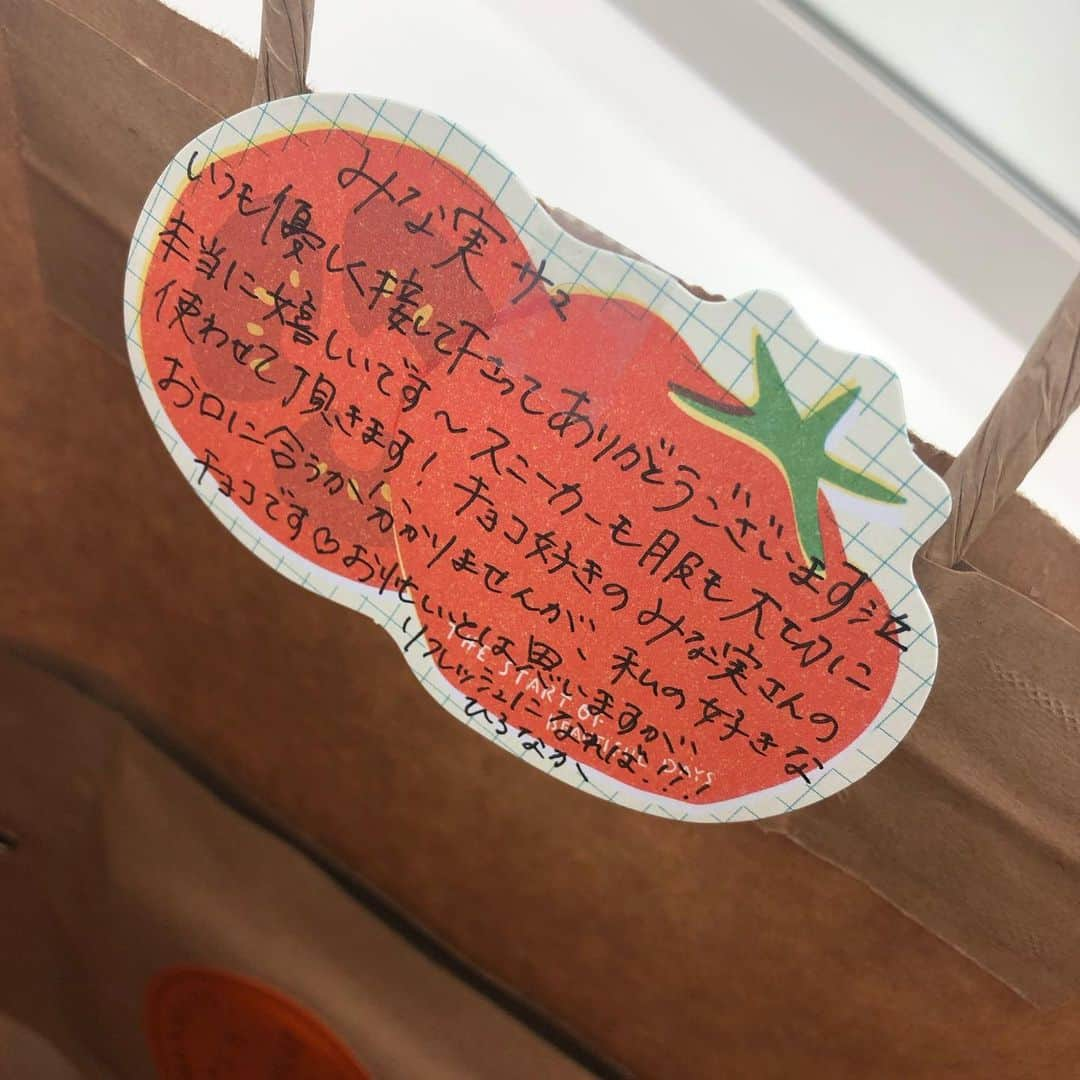 みな実サマ
いつも優しく接して下さってありがとうございます泣
本当に嬉しいです〜スニーカーも服も大切に
使わせて頂きます！チョコ好きのみな実さんの
お口に合うか分かりませんが、私の好きな
チョコです♡お忙しいとは思いますが、
リフレッシュになれば！？！
ひらなか
THE START OF
BEAUTIFUL DAYS